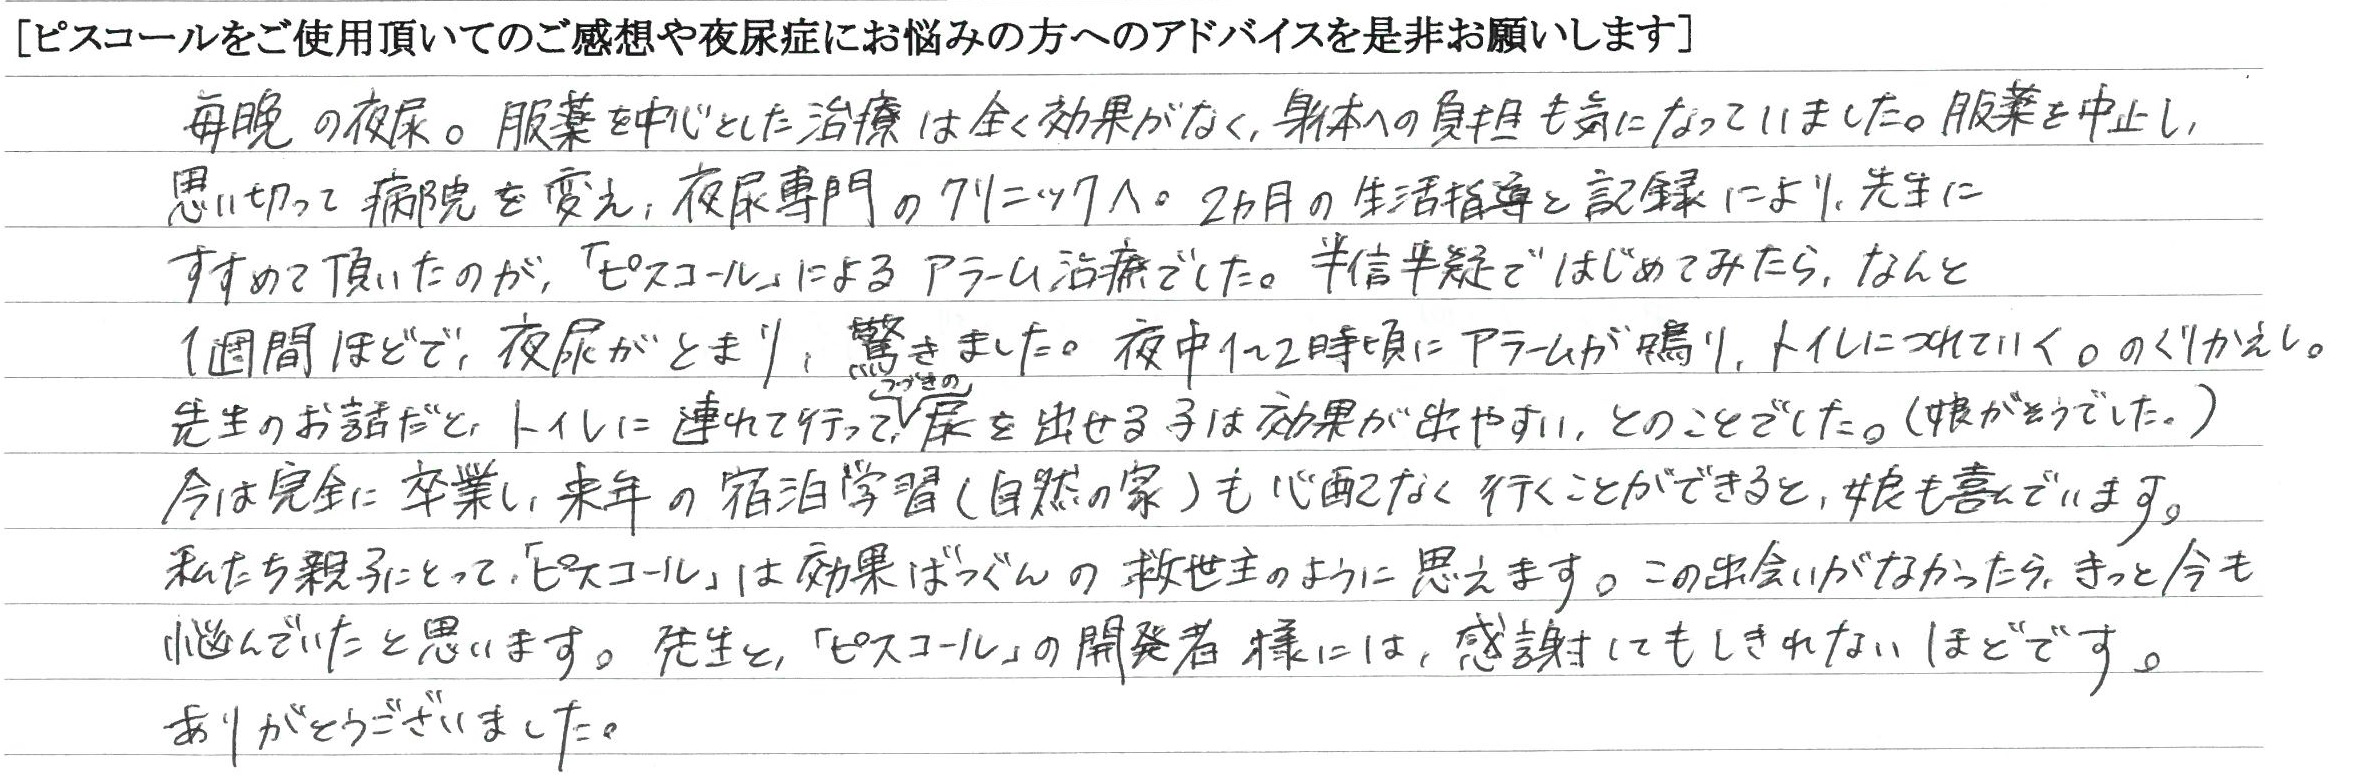 [ピスコールをご使用頂いてのご感想や夜尿症にお悩みの方へのアドバイスを是非お願いします]
毎晩の夜尿。服薬を中心とした治療は全く効果がなく,身体への負担も気になっていました。服薬を中止し,
思い切って病院を変え,夜尿専門のクリニックへ。2カ月の生活指導と記録により,先生に
すすめて頂いたのが,「ピスコール」によるアラーム治療でした。半信半疑ではじめてみたら,なんと
1週間ほどで,夜尿がとまり,驚きました。夜中1~2時頃にアラームが鳴り,トイレにつれていく。のくりかえし。
つづきの
先生のお話だと,トイレに連れて行って,尿を出せる子は効果が出やすい,とのことでした。(娘がそうでした。)
今は完全に卒業し,来年の宿泊学習(自然の家)も心配なく行くことができると,娘も喜んでいます。
私たち親子にとって,「ピスコール」は効果ばつぐんの救世主のように思えます。この出会いがなかったら,きっと今も
悩んでいたと思います。先生と,「ピスコール」の開発者様には,感謝してもしきれないほどです。
ありがとうございました。